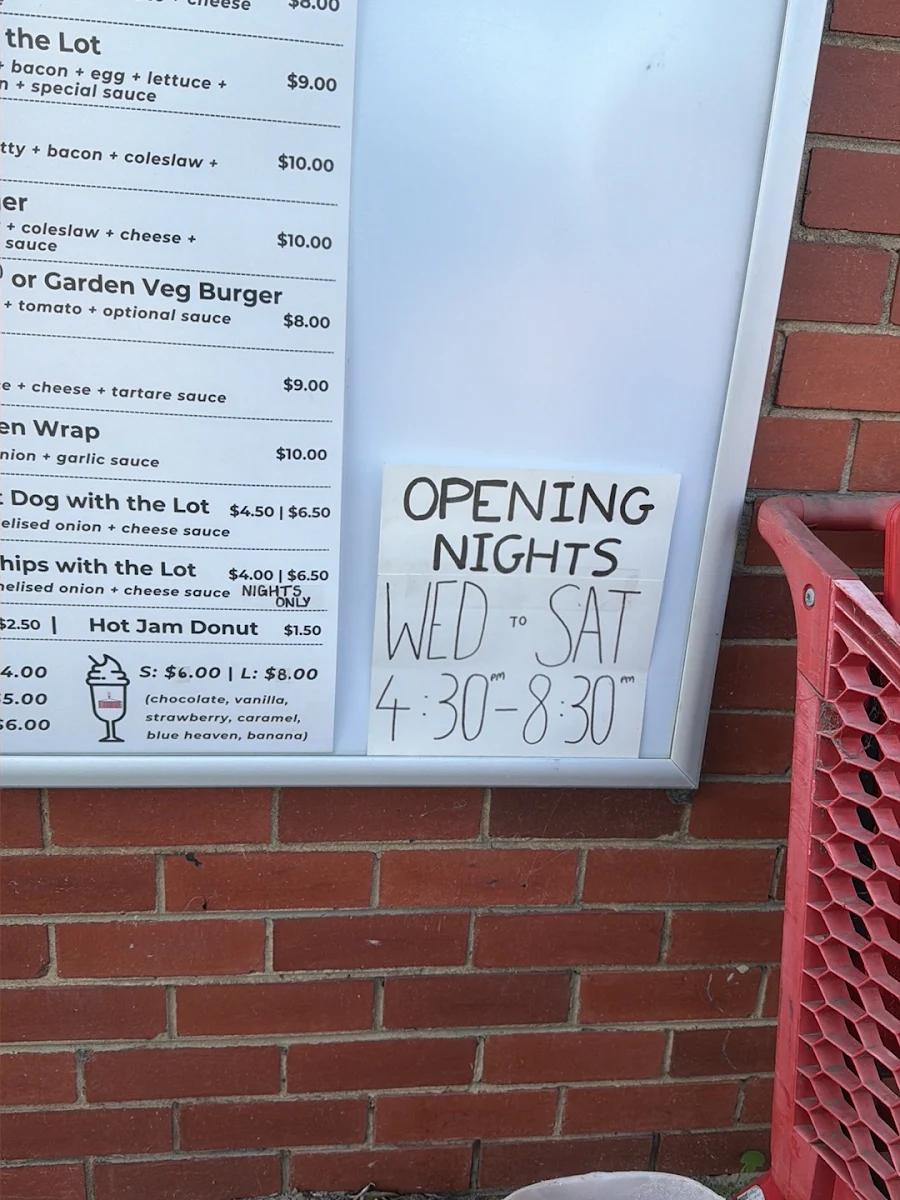 cheese $8.00
the Lot
+ bacon + egg + lettuce + $9.00
+ special sauce
+ bacon + coleslaw + $10.00
+ coleslaw + cheese + $10.00
sauce
or Garden Veg Burger
+ tomato + optional sauce $8.00
+ cheese + tartare sauce $9.00
Wrap
+ garlic sauce $10.00
Dog with the Lot $4.50 | $6.50
onion + cheese sauce
with the Lot $4.00 | $6.50
onion + cheese sauce NIGHTS
ONLY
$2.50 | Hot Jam Donut $1.50
4.00 S: $6.00 | L: $8.00
5.00 (chocolate, vanilla,
strawberry, caramel,
$6.00 blue heaven, banana)
OPENING
NIGHTS
WED TO SAT
4:30PM-8:30PM